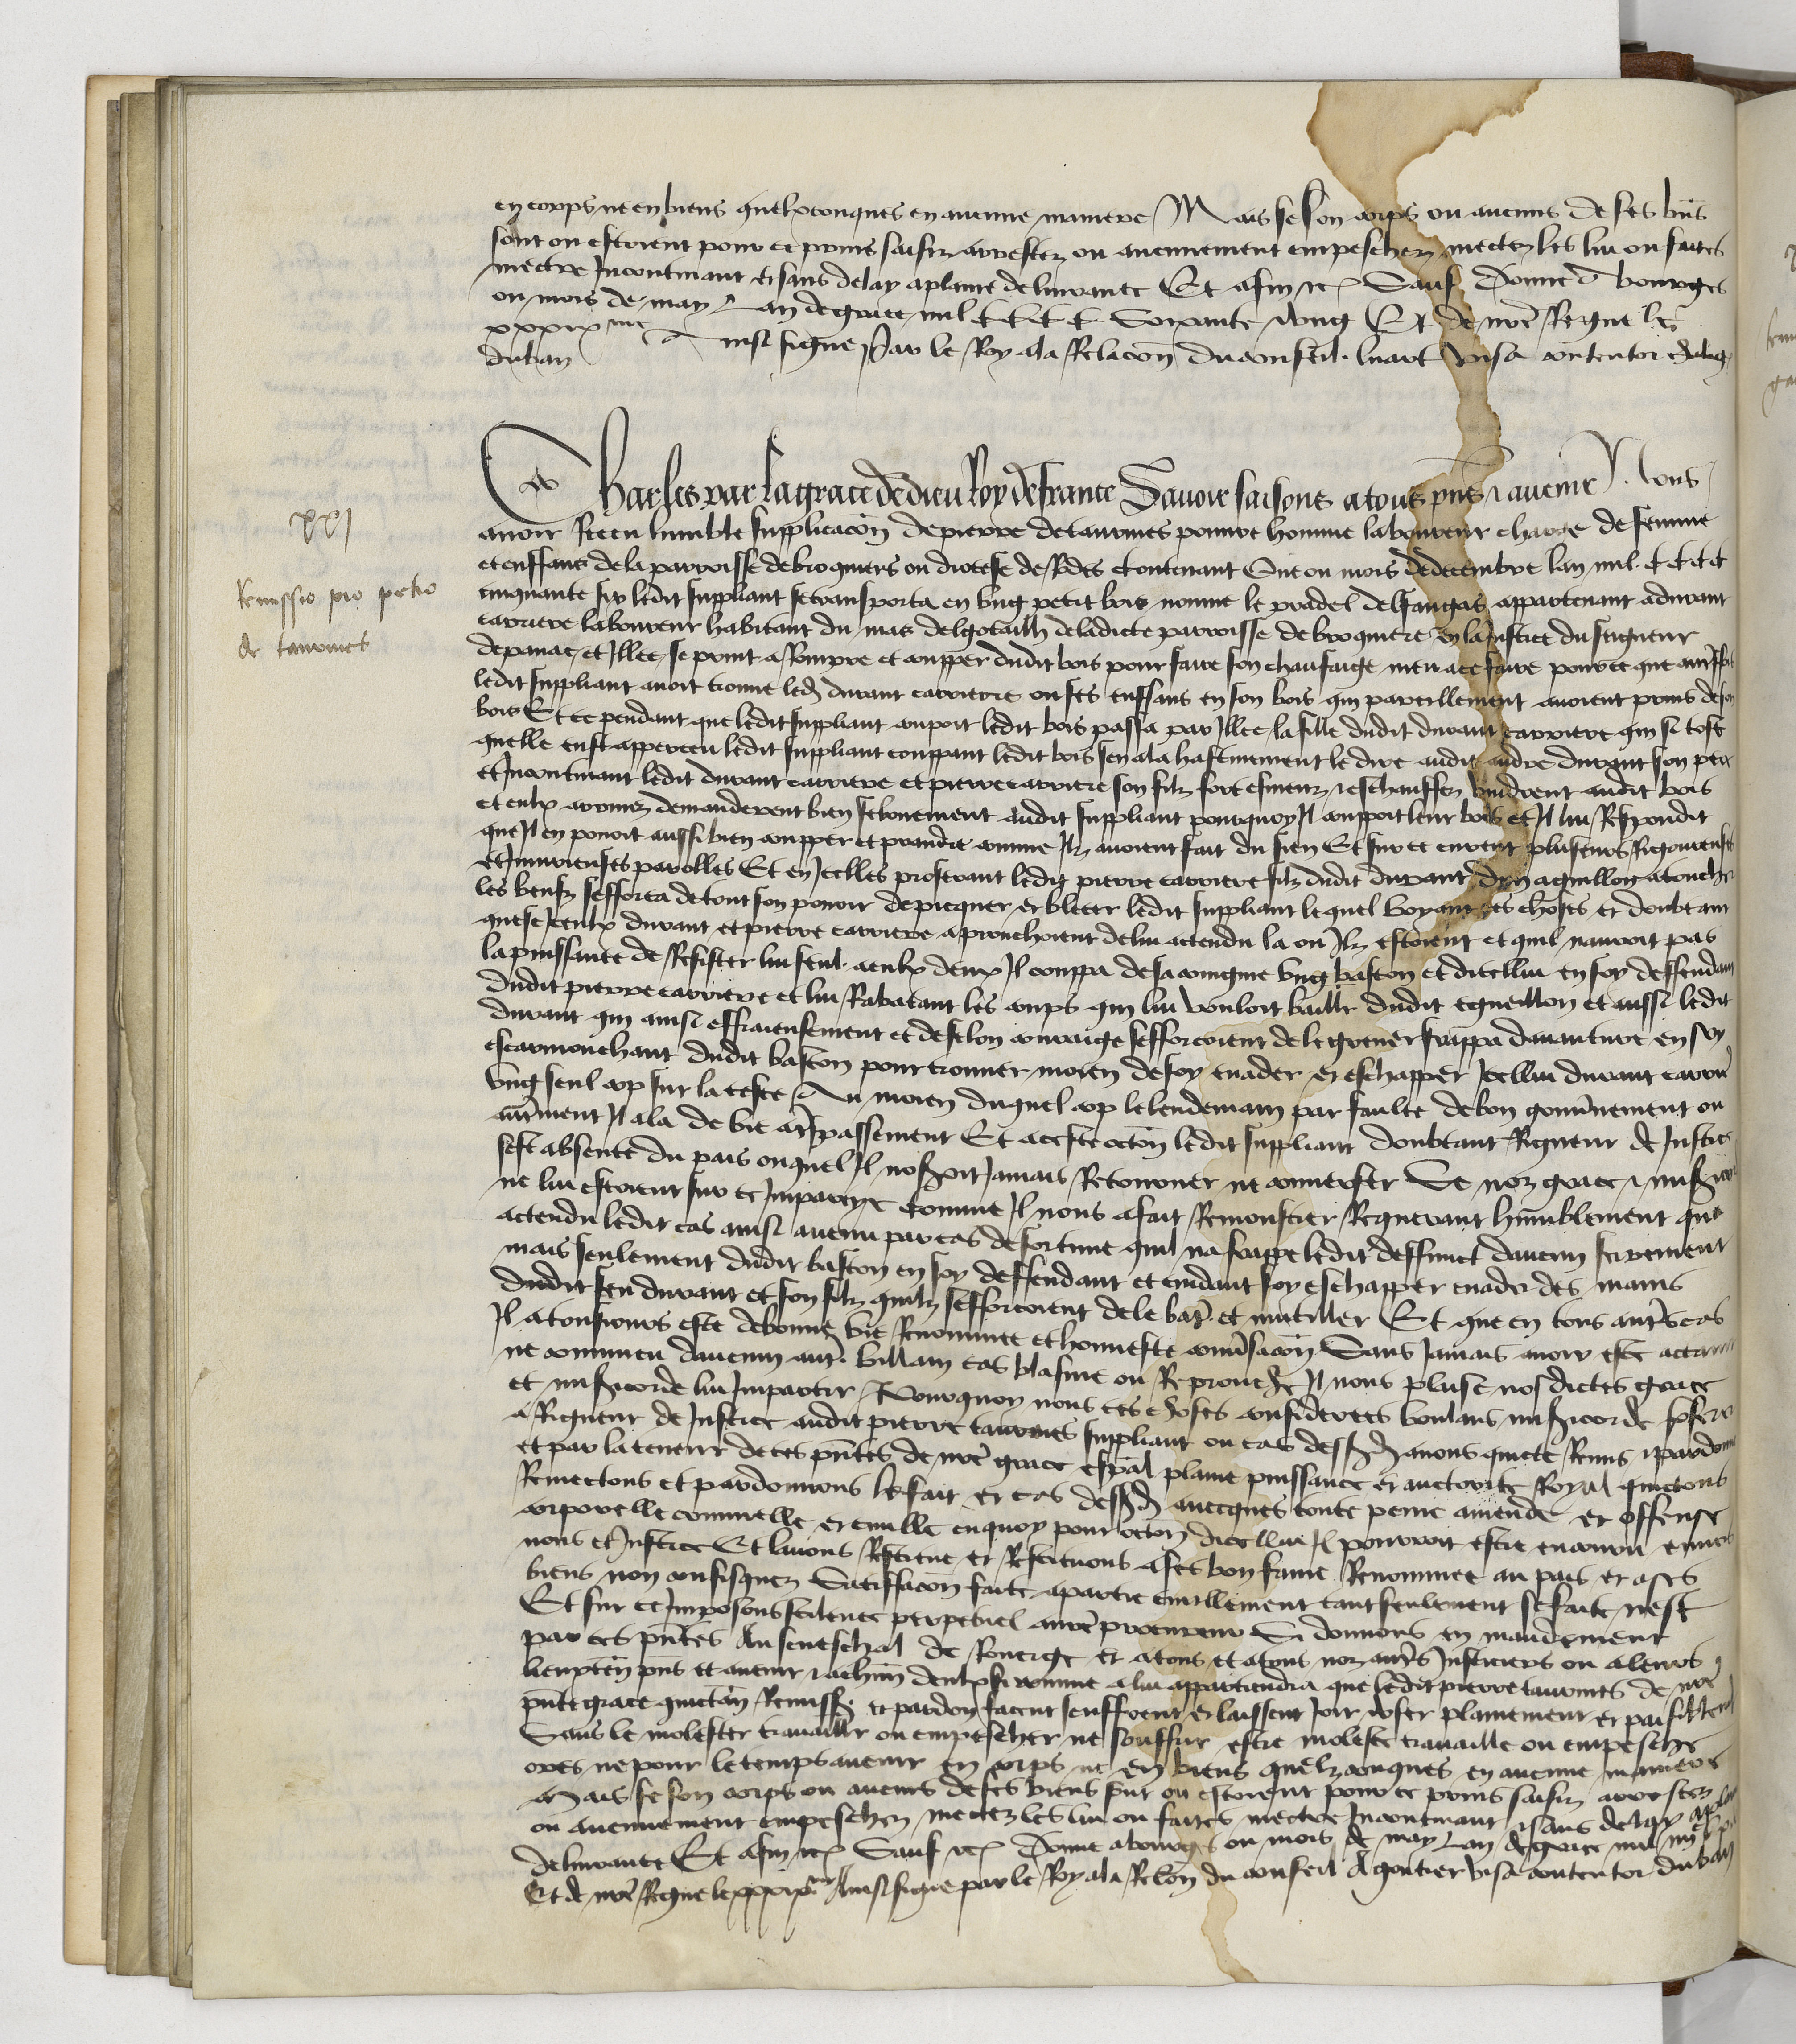 en corps ne en biens quelxconques en aucune maniere Mais se son corps ou aucuns de ses biens
sont ou estoient pour ce prins saisiz arrestez ou aucunement empeschez mectez les lui ou faites
mectre Incontinant et sans delay a plaine delivrance Et afin etc Sauf Donne a bourges
ou mois de may Lan de grace mil CCCC soixante et ung Et de nre Regne le
xxxixme Ainsi signe Par le Roy a la Relacon du conseil. Visa contentor
duban
Charles par la grace de dieu Roy de france Savoir faisons a tous pns & avenir. Nous
XXI
avoir Receu humble supplicacon de pierre de tauromes povre homme laboureur charge de femme
Remissio pro petro
de tauromes
et enffans de la parroisse de broquiers ou diocese de Rodes contenant Que ou mois de decembre lan mil CCCC
cinquante six ledit suppliant se transporta en ung petit bois nomme le pradel delfangas appartenant a durant
carriere laboureur habitant du mas de ladicte parroisse de broquiers en la Justice du seigneur
de panat et Illec se print a Rompre et coupper dudit bois pour faire son chaufaige pource que
ledit suppliant avoit trouve led durant carriere ou ses enffans en son bois qui pareillement avoient prins de son
bois Et ce pendant que ledit suppliant coupoit ledit bois passa par Illec la fille dudit durant carriere qui si tost
quelle eust apperceu ledit suppliant couppant ledit bois sen ala hastivement le dire audit durant son pere
et Incontinant ledit durant carriere et pierre carriere son filz fort esmeuz & eschauffez vindrent audit bois
et eulx arrivez demanderent bien audit suppliant pourquoy Il couppoit leur bois et Il lui Respondit
que Il en povoit aussi bien coupper et prandre comme Ilz avoient fait du sien Et sur ce eurent pluseurs Rigoreuses
et Injurieuses parolles Et en Icelles proferant ledit pierre carriere filz dudit durant dun aguillon a toucher
les beufz sefforca de tout son povoir de picquer et blecer ledit suppliant lequel voyant ces choses et doubtant
que se Iceulx durant et pierre carriere aprouchoient de lui actendu la ou Ilz estoient et quil navoit pas
la puissance de Resister lui seul a eulx deux Il couppa de sa coingnee ung baston et dicellui en soy deffendant
dudit pierre carriere et lui Rabatant les coups qui lui vouloit bailler dudit eguillon et aussi ledit
durant qui ainsi effraieusement et de felon couraige sefforcoient de le grever frappa davanture en soy
escarmouchant dudit baston pour trouver moien de soy evader et eschapper Icellui durant
ung seul cop sur la teste Au moien duquel cop le lendemain par faulte de bon gouvnement ou
autrement Il ala de vie a trspassement Et a ceste occon ledit suppliant doubtant Rigueur de Justice
sest absente du pais ouquel Il noseroit Jamais Retourner ne converser Se noz grace &
ne lui estoient sur ce Imparties Comme Il nous a fait Remonstrer Requerant humblement que
actendu ledit cas ainsi avenu par cas de fortune quil na frappe ledit deffunct daucun ferrement
mais seulement dudit baston en soy deffendant et cuidant soy eschapper evader des mains
dudit feu durant et son filz quilz sefforcoient de le batre et mutiller Et que en tous autres cas
Il a tousjours este de bonne vie Renommee et honneste convsacon Sans Jamais avoir este actaint
ne convaincu daucun autre villain cas blasme ou Reprouche Il nous plaise nosdictes grace
et misericorde lui Impartir Pourquoy nous ces choses considerees voulans misericorde preferer
a Rigueur de Justice audit pierre tauromes suppliant ou cas dessusd avons quicte Remis & pardonne
et par la teneur de ces pntes de nre grace espal plaine puissance et auctorite Royal quictons
Remectons et pardonnons le fait et cas dessusd avecques toute peine amende et offense
corporelle criminelle et civille en quoy pour occon dicellui Il pourroit estre encouru envers
nous et Justice Et lavons Restitue et Restituons a ses bon fame Renommee au pais et a ses
biens non confisquez Satisfacon faite a partie civillement tant seulement se faite nest
Et sur ce Imposons scilence perpetuel a nre procureur Si donnons en mandement
par ces pntes Au seneschal de Rouergue et a tous et a tous noz autres Justiciers ou a leurs
lieuxten pns et avenir & a chun deulx si comme a lui appartiendra que ledit pierre tauromes de nre
pnte grace quictan Remiss et pardon facent seuffrent et laissent Joir user plainement et paisiblement
Sans le molester travailler ou empescher ne souffrir estre moleste travaille ou empesche
ores ne pour le temps avenir en corps ne en biens quelzconques en aucune maniere
Mais se son corps ou aucuns de ses biens sont ou estoient pour ce prins saisiz arrestez
ou aucunement empeschez mectez les lui ou faites mectre Incontinant & sans delay a plaine
delivrance Et afin etc Sauf etc Donne a bourges ou mois de may Lan de grace mil
Et de nre Regne le xxxixme Ainsi signe par le Roy a la Relon du conseil A goutier Visa contentor Duban